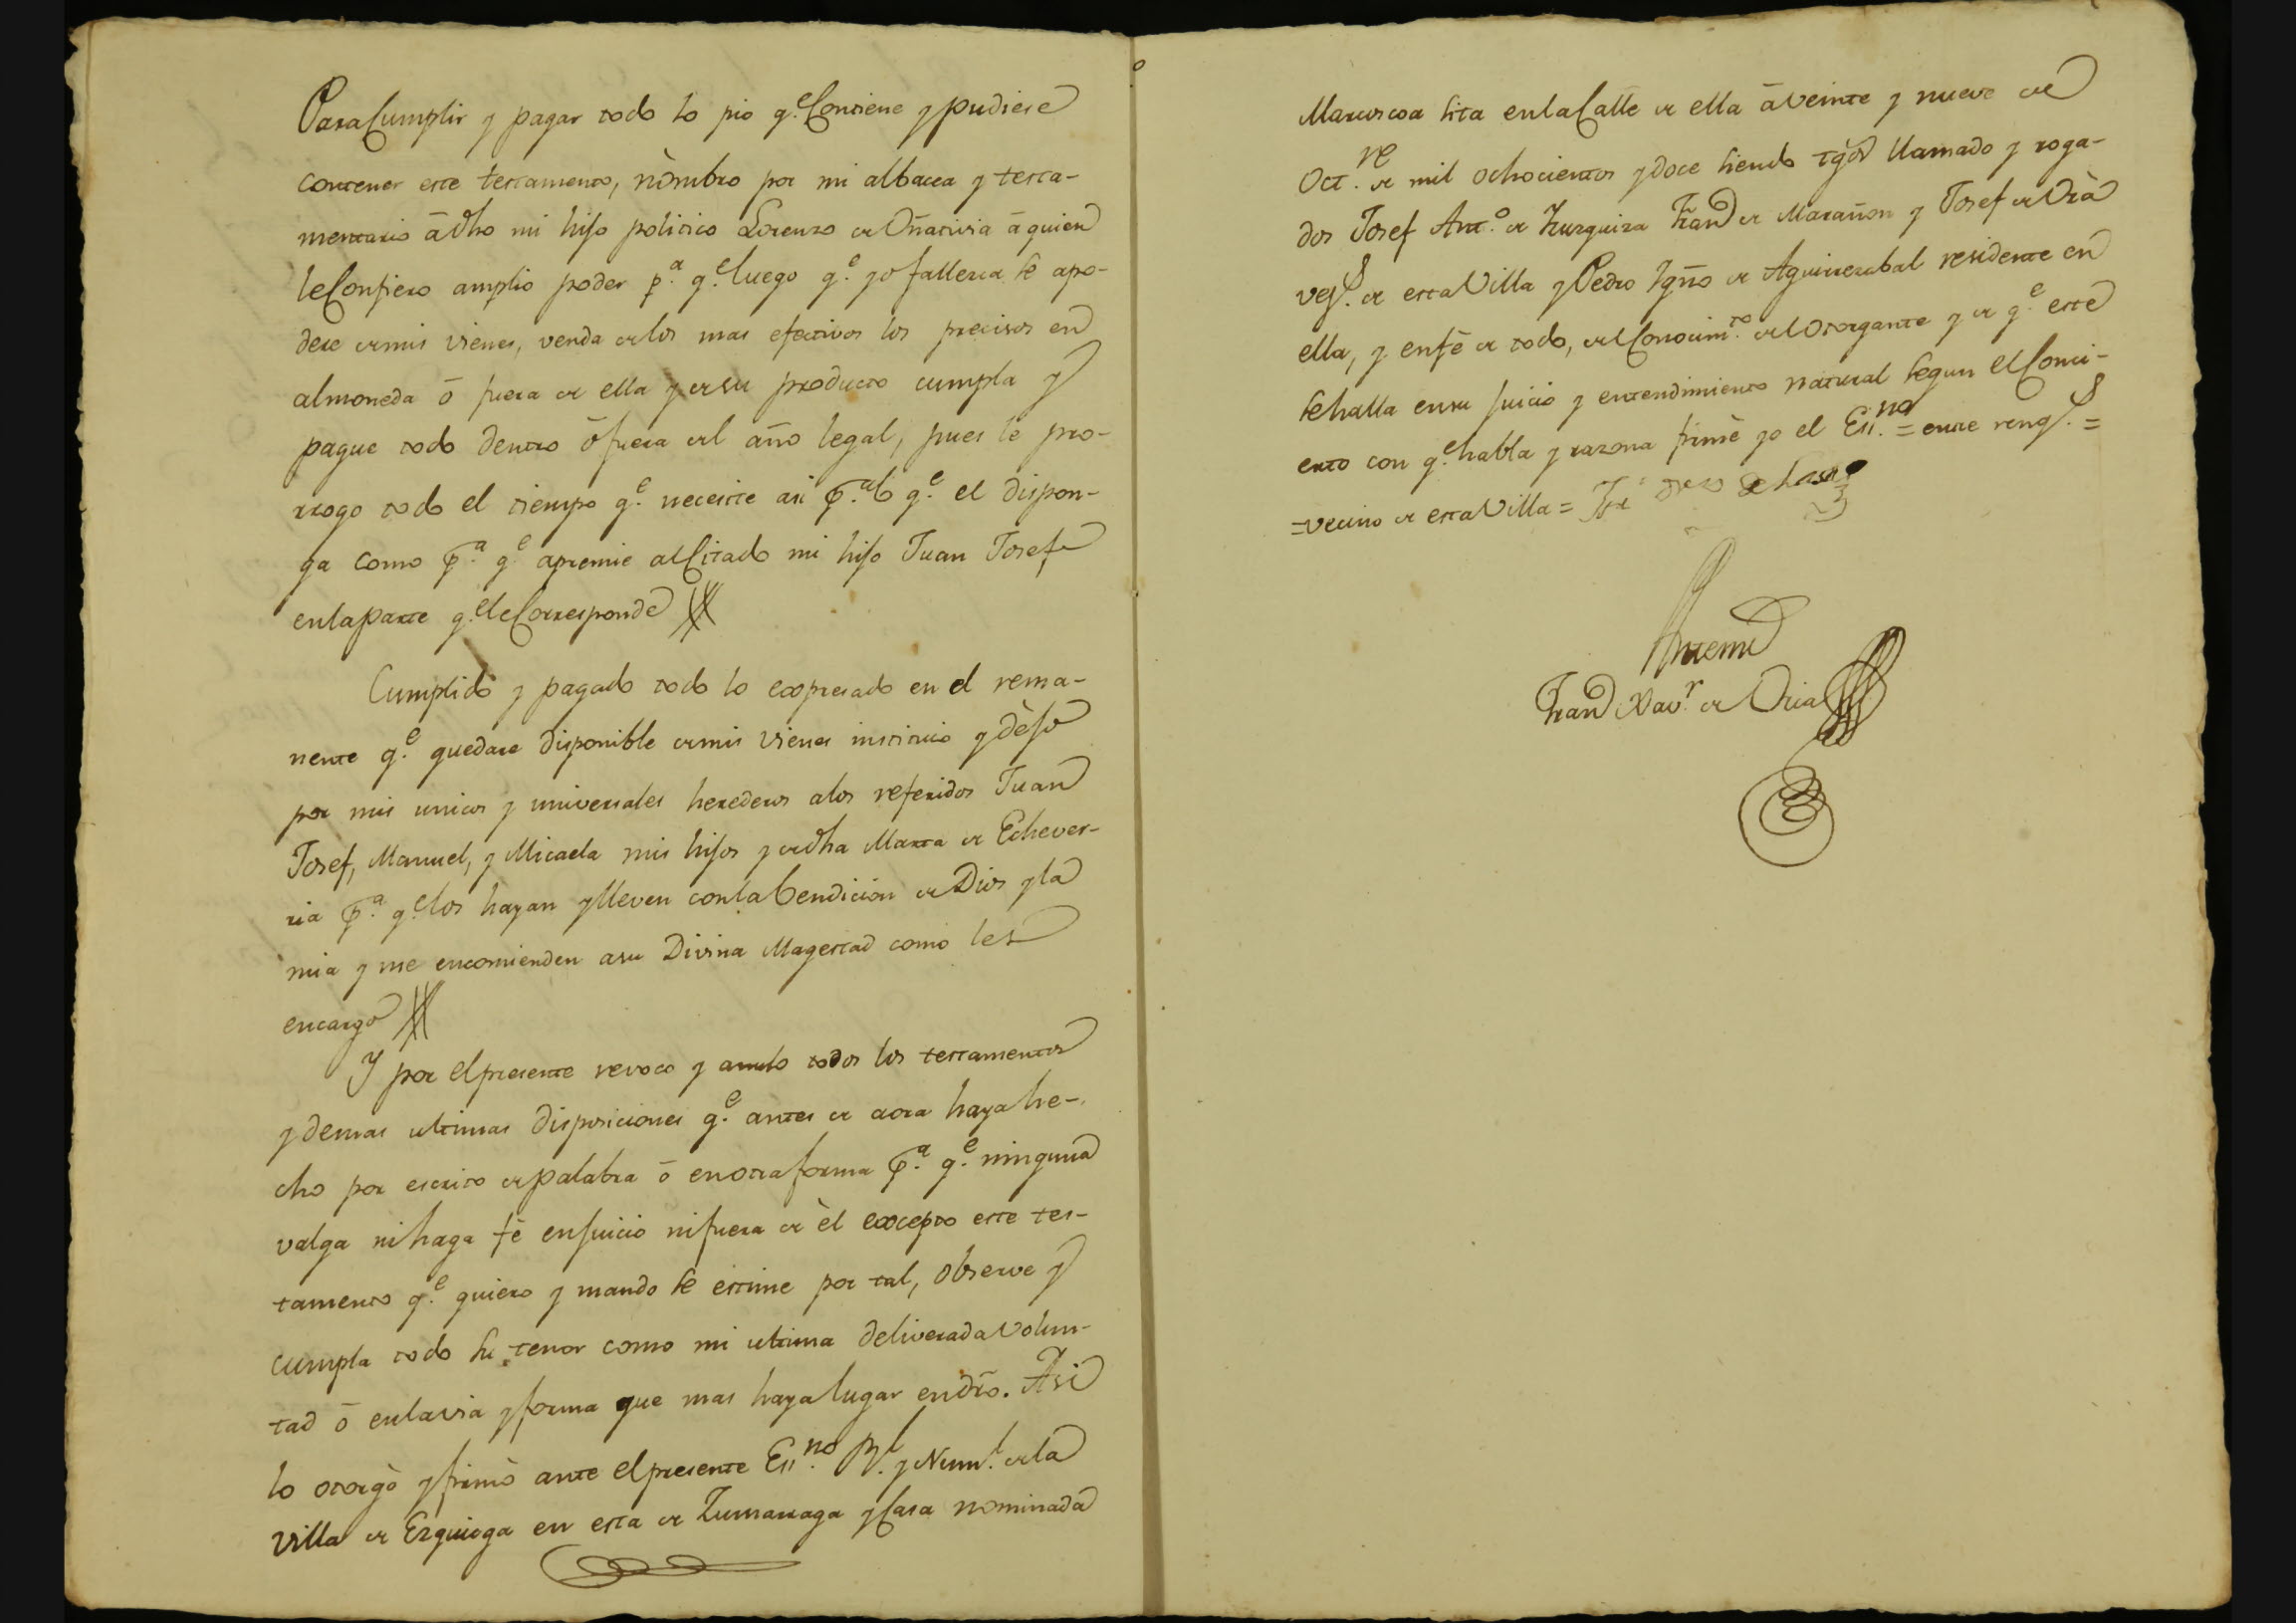 Para Cumplir y pagar todo lo pio q.e Contiene y pudiere
contener este testamento, nòmbro por mi albacea y testa-
mentario á dho mi hijo politico Lorenzo de Oñativia á quien
le Confiero amplio poder p.a q.e luego q.e yo fallezca se apo-
dere de mis vienes, venda de los mas efectivos los precisos en
almoneda ó fuera de ella y de su producto cumpla y
pague todo dentro ó fuera del año legal, pues le pro-
rrogo todo el tiempo q.e necesite asi p.a lo q.e el dispon-
ga como p.a q.e apremie al Citado mi hijo Juan Josef
en la parte q.e le Corresponde
Cumplido y pagado todo lo expresado en el rema-
nente q.e quedare disponible de mis vienes instituio y dèjo
por mis unicos y universales herederos a los referidos Juan
Josef, Manuel, y Micaela mis hijos y de dha Marta de Echever-
ria p.a q.e los hayan y lleven con la bendicion de Dios y la
mia y me encomienden a su Divina Magestad como les
encargo
Y por el presente revoco y anulo todos los testamentos
y demas ultimas disposiciones q.e antes de aora haya he-
cho por escrito de palabra ó en otra forma p.a q.e ninguna
valga ni haga fè en juicio ni fuera de èl excepto este tes-
tamento q.e quiero y mando se estime por tal, observe y
cumpla todo su tenor como mi ultima deliverada volun-
tad ó en la via y forma que mas haya lugar en dro. Asi
lo otorgò y firmò ante el presente Ess.no R.l y Num.l de la
villa de Ezquioga en esta de Zumarraga y Casa nominada
Marcoscoa sita en la Calle de ella á veinte y nueve de
Oct.re de mil ochocientos y doce siendo tgos llamado y roga-
dos Josef Ant.o de Yzuzquiza Fran.co de Marañon y Josef de Oria
vez.s de esta Villa y Pedro Ygño de Aguirrezabal residente en
ella, y en fè de todo, del Conocim.to del Otorgante y de q.e este
se halla en su juicio y entendimiento natural segun el Conci-
erto con q.e habla y razona firmè yo el Ess.no = entre reng.s =
=vecino de esta Villa =
Ante mi
Fran.co Xav.r de Oria